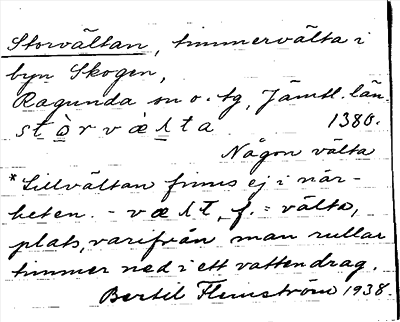 Storvältan, timmervälta i
byn Skogen,
Ragunda sn o. tg, Jämtl. län.
stò̱rvæʌta 1380.
Någon välta
*Lillvältan finns ej i när-
heten. - væʌt̄, f. = välta,
plats, varifrån man rullar
timmer ned i ett vattendrag.
Bertil Flemström 1938.